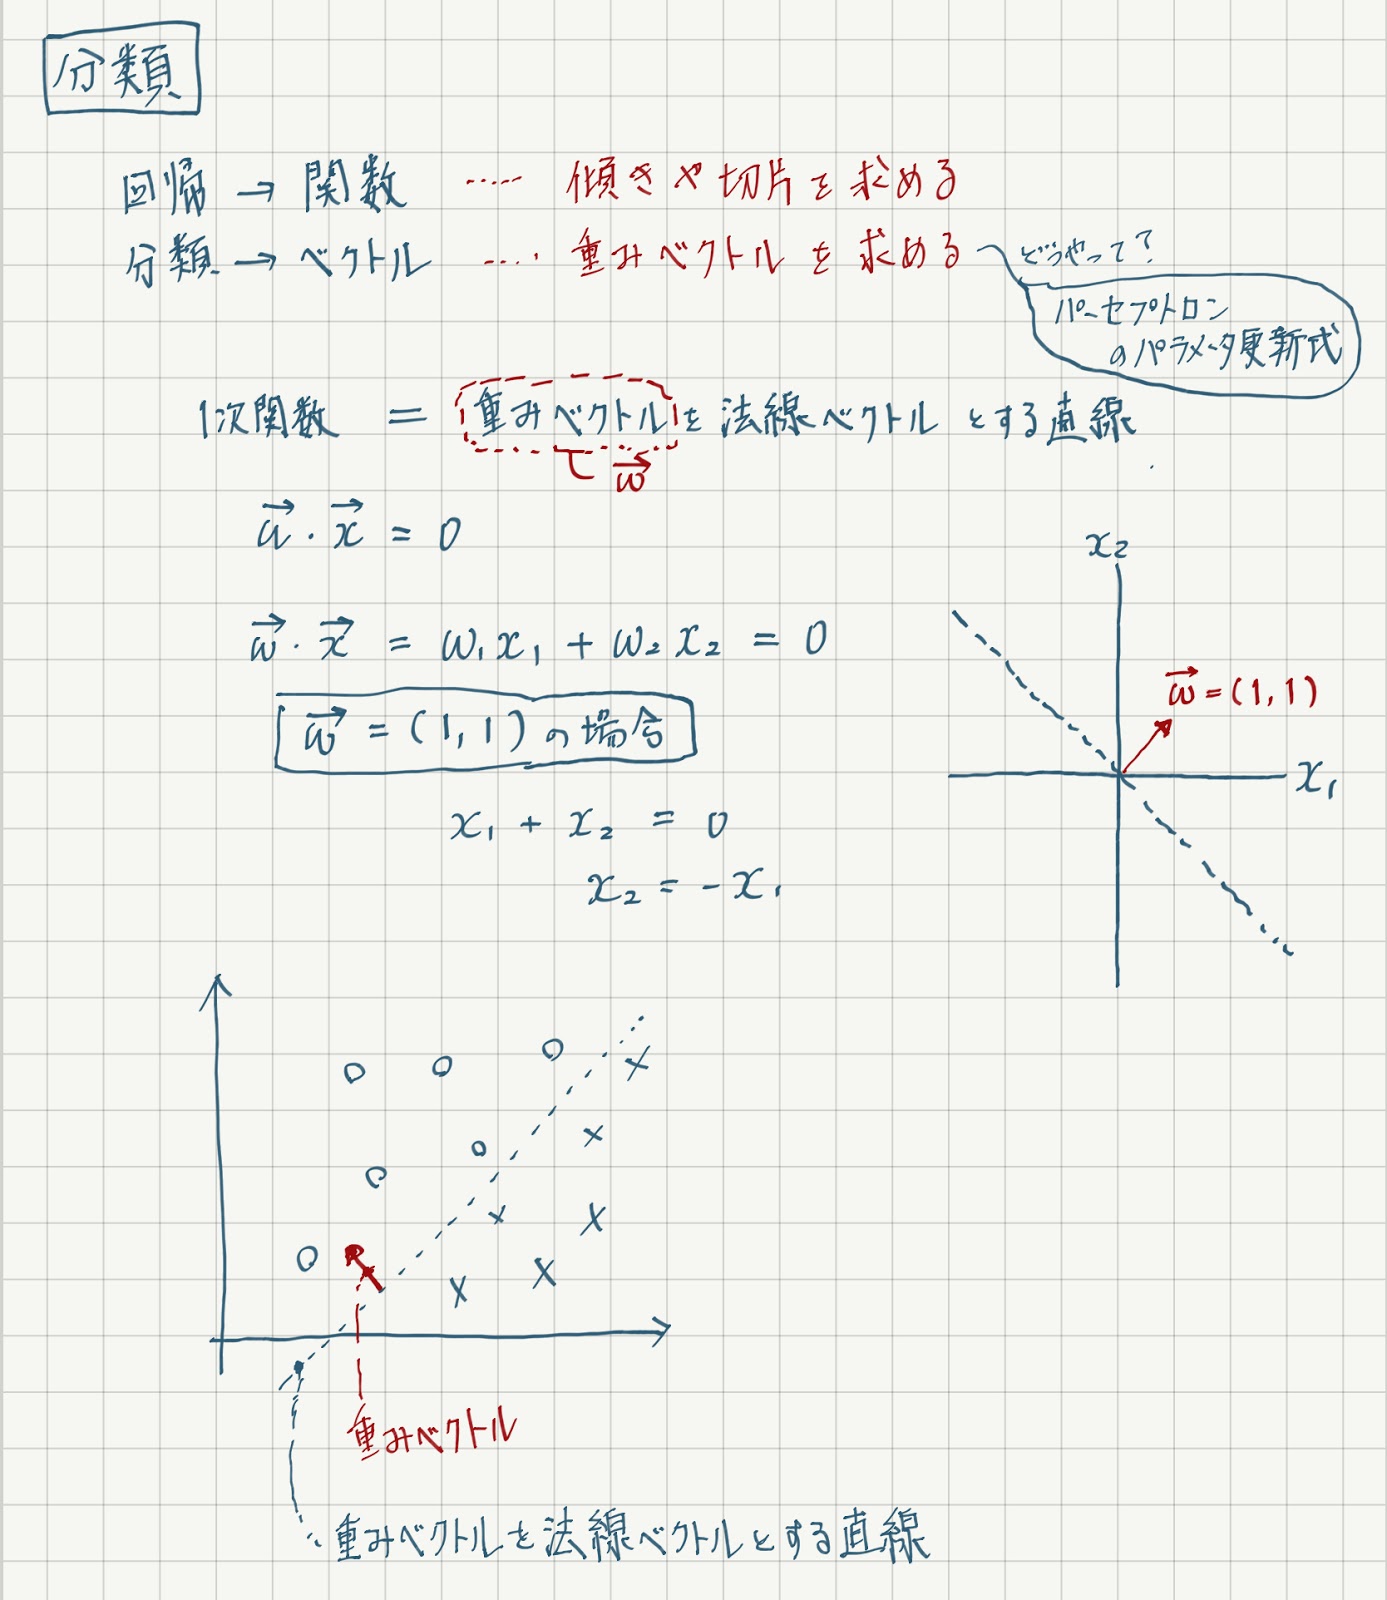 分類
回帰 → 関数 ‥‥ 傾きや切片を求める
分類 → ベクトル ‥‥ 重みベクトルを求める
どうやって？
パーセプトロン
のパラメータ更新式
1次関数 = 重みベクトルを法線ベクトルとする直線
w
w・x = 0
w・x = w₁x₁ + w₂x₂ = 0
w = (1, 1) の場合
x₁ + x₂ = 0
x₂ = -x₁
x₂
w = (1, 1)
x₁
重みベクトル
重みベクトルを法線ベクトルとする直線